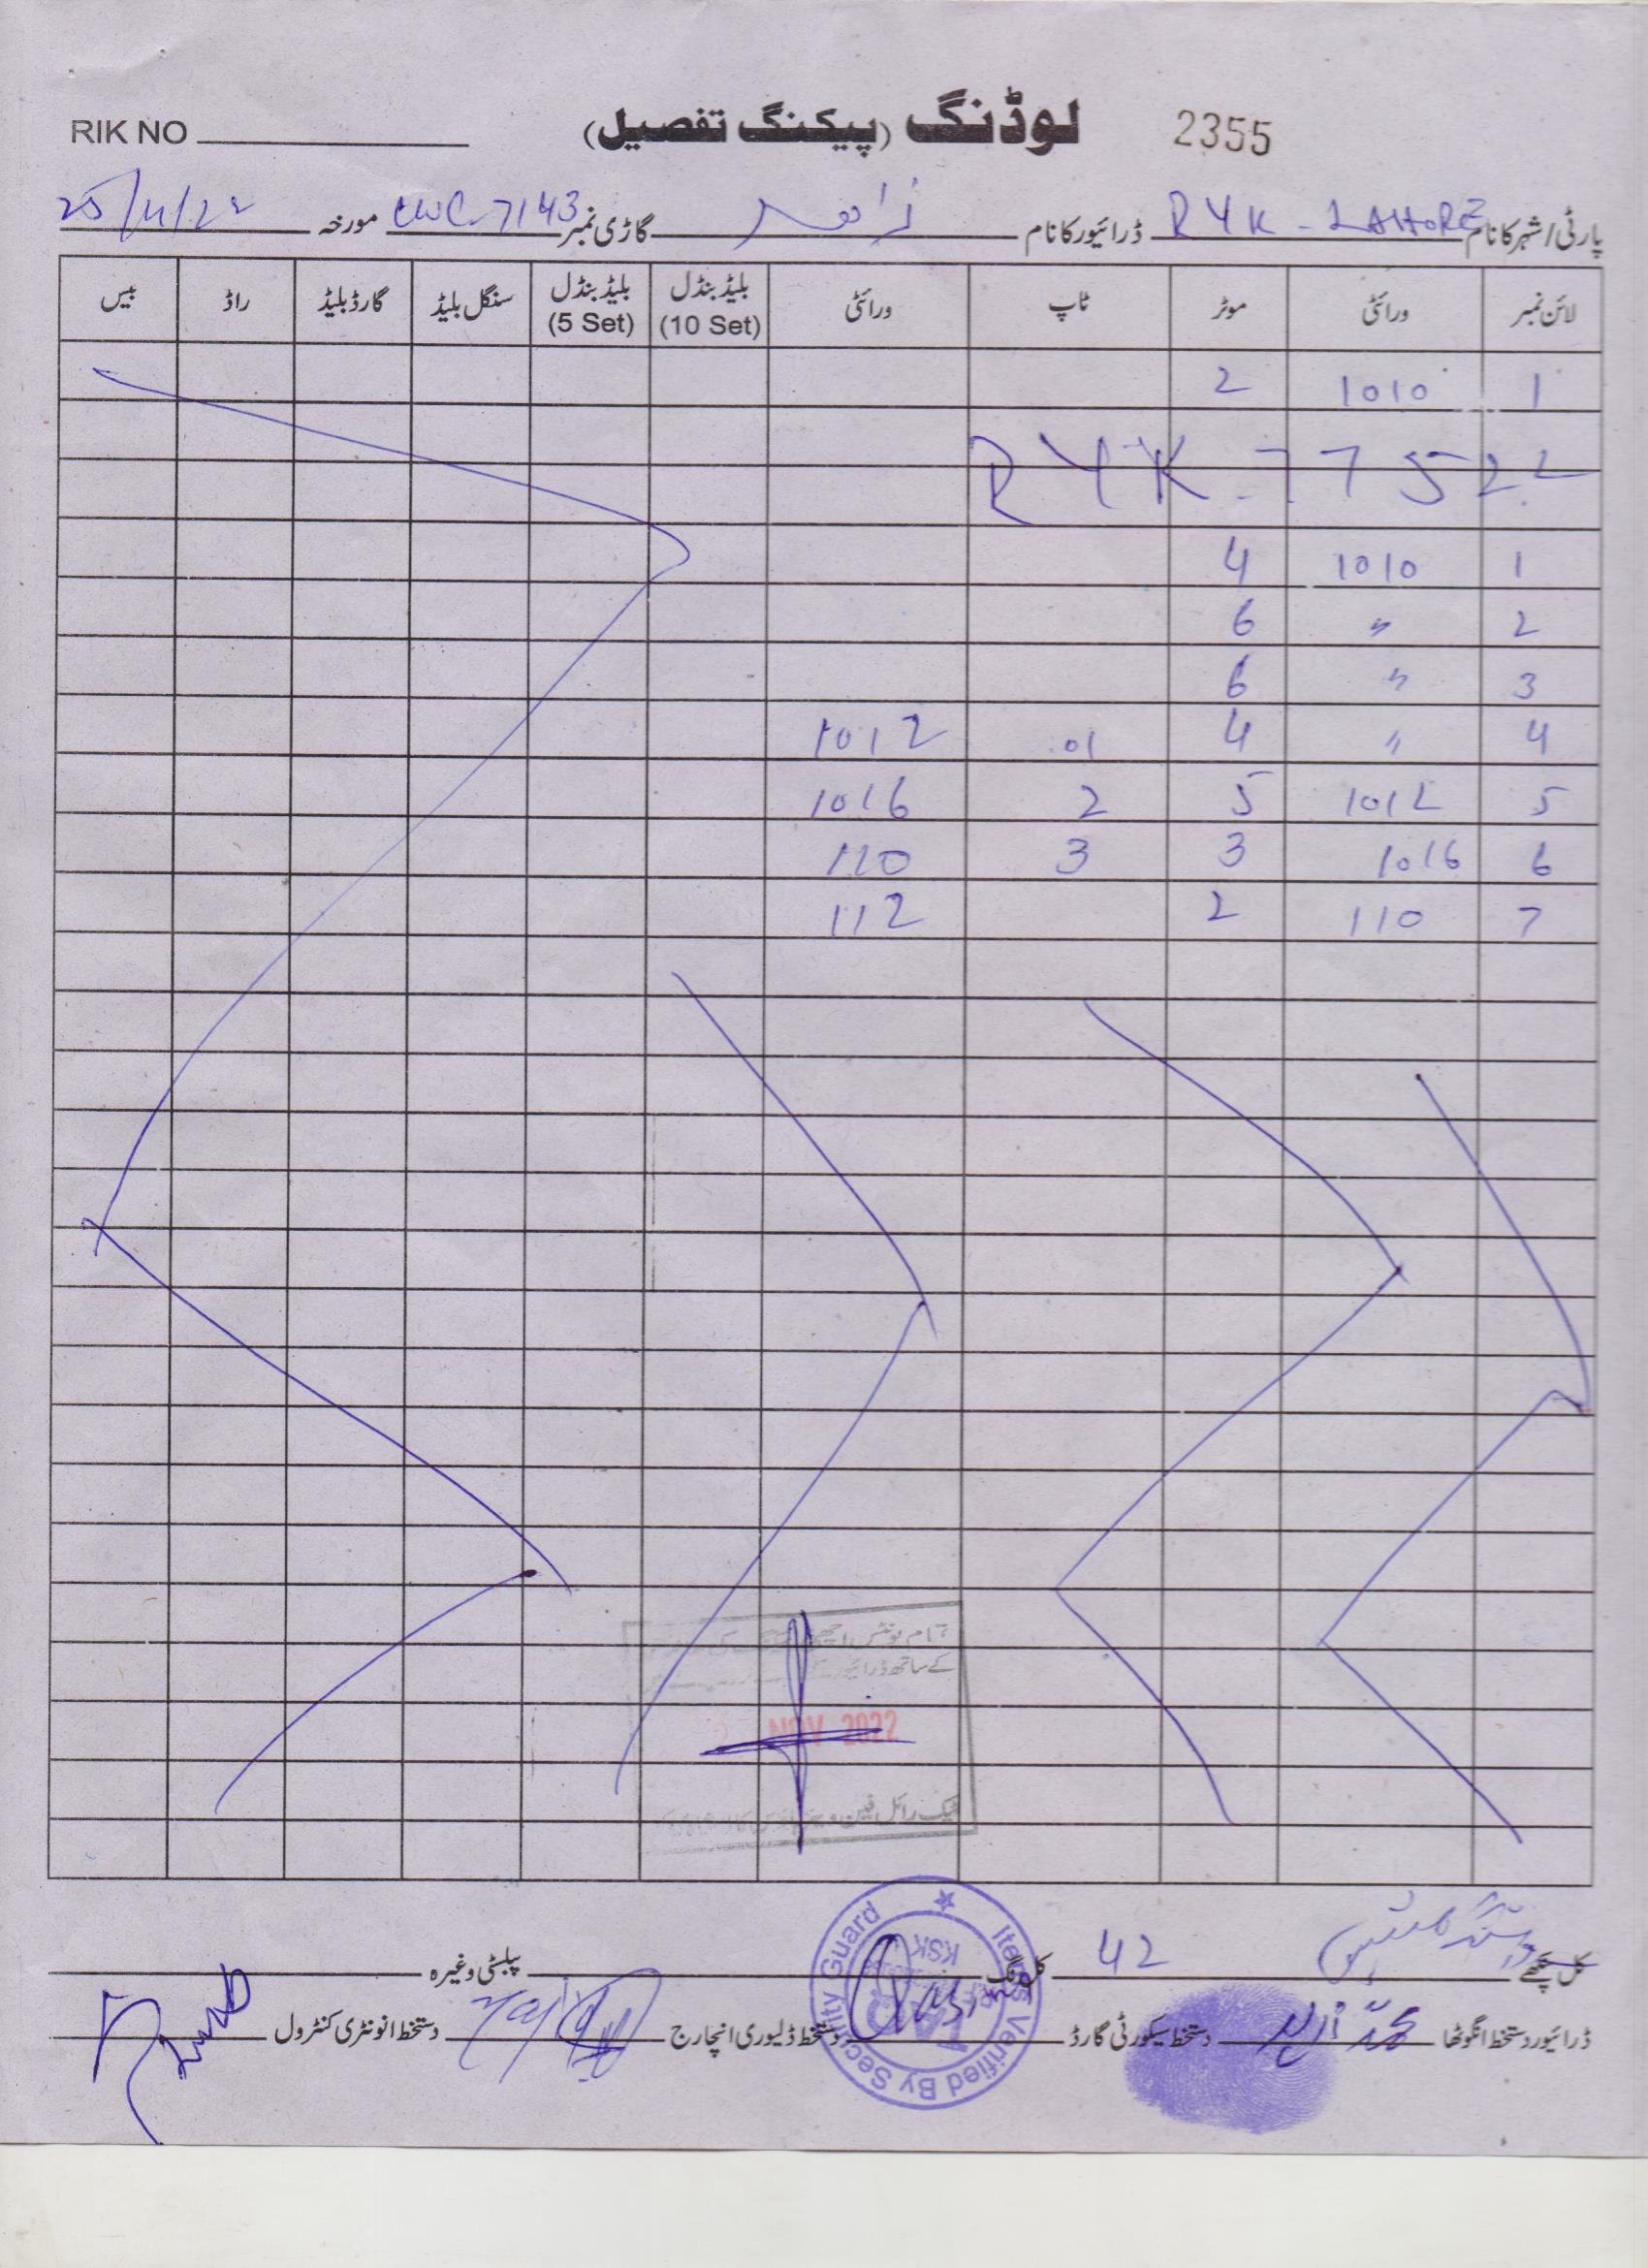 RIK NO لوڈنگ (پیکنگ تفصیل) 2355
پارٹی/شہر کا نام RYK - LAHORE ڈرائیور کا نام گاڑی نمبر 7143 مورخہ 25/11/22
لائن نمبر ورائٹی موٹر ٹاپ ورائٹی بلیڈ بنڈل (10 Set) بلیڈ بنڈل (5 Set) سنگل بلیڈ گارڈ بلیڈ راڈ بیس
1 1010 2
RYK - 77522
1 1010 4
2 〃 6
3 〃 6
4 〃 4 01 1012
5 1012 5 2 1016
6 1016 3 3 110
7 110 2 112
تمام یونٹس
کے ساتھ ڈرائیور
NOV 2022
کل پنکھے کل نگ 42 پبلسٹی وغیرہ
ڈرائیور دستخط انگوٹھا محمد دستخط سیکورٹی گارڈ دستخط ڈلیوری انچارج دستخط انونٹری کنٹرول
Items Verified By Security Guard
KSK